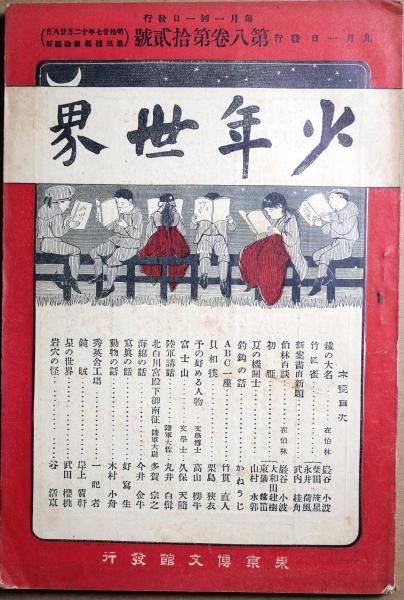 毎月一回一日發行
九月一日發行
第八卷第拾貳號
明治廿七年十二月廿八日
第三種郵便物認可
少年世界
本號目次
鐵の大名 在伯林 巖谷小波
竹に雀 柴田流星 永井荷風
新案畵直新題 武内桂舟
伯林百談 在伯林 巖谷小波
初雁 大和田建樹 東儀鐵笛
夏の機關士 山村水郭
釣鈎の話 かねうじ
ABC一座 竹貫直人
貝相撲 栗島狹衣
予の好める人物 文學博士 高山樗牛
富士山 文學士 久保天隨
陸軍講話 陸軍大佐 丸井白髯
北白川宮殿下御南征 陸軍大尉 多賀宗之
海綿の話 今井金牛
寫眞の話 好寫生
動物の話 木村小舟
秀英舎工場 一記者
岸上質軒
星の世界 武田櫻桃
岩穴の怪 谷活東
東京博文館發行